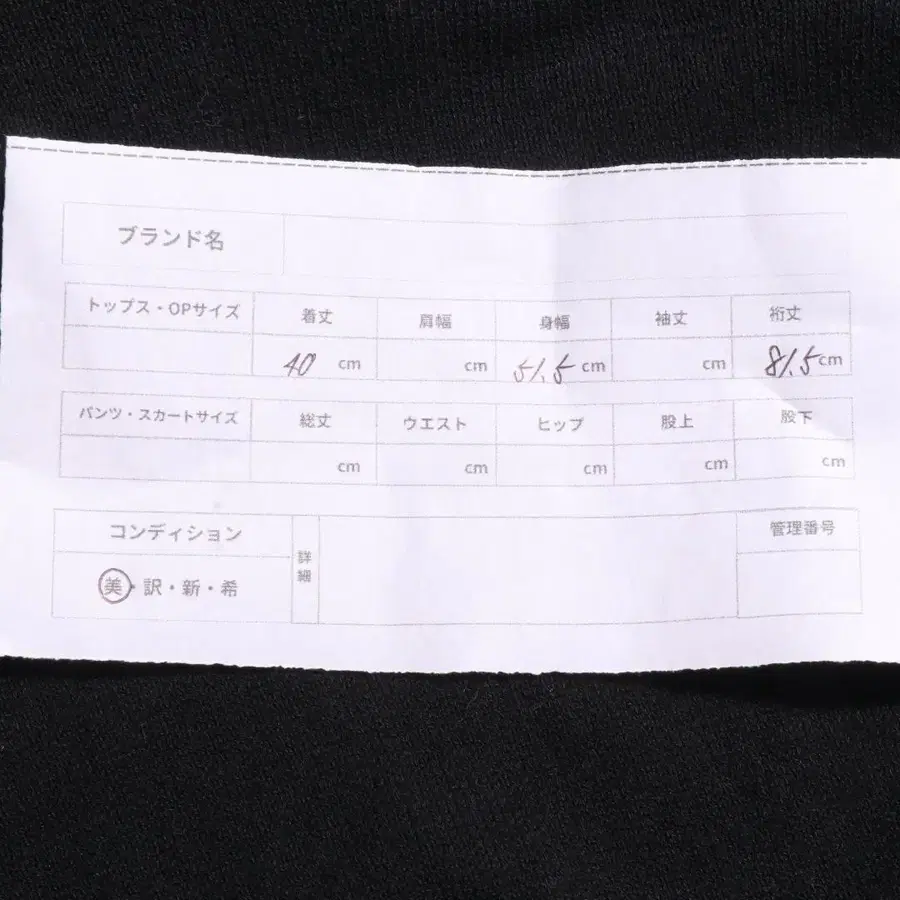 ブランド名
トップス・OPサイズ 着丈 肩幅 身幅 袖丈 裄丈
40 cm cm 51.5 cm cm 81.5 cm
パンツ・スカートサイズ 総丈 ウエスト ヒップ 股上 股下
cm cm cm cm cm
コンディション 詳細 管理番号
美・訳・新・希